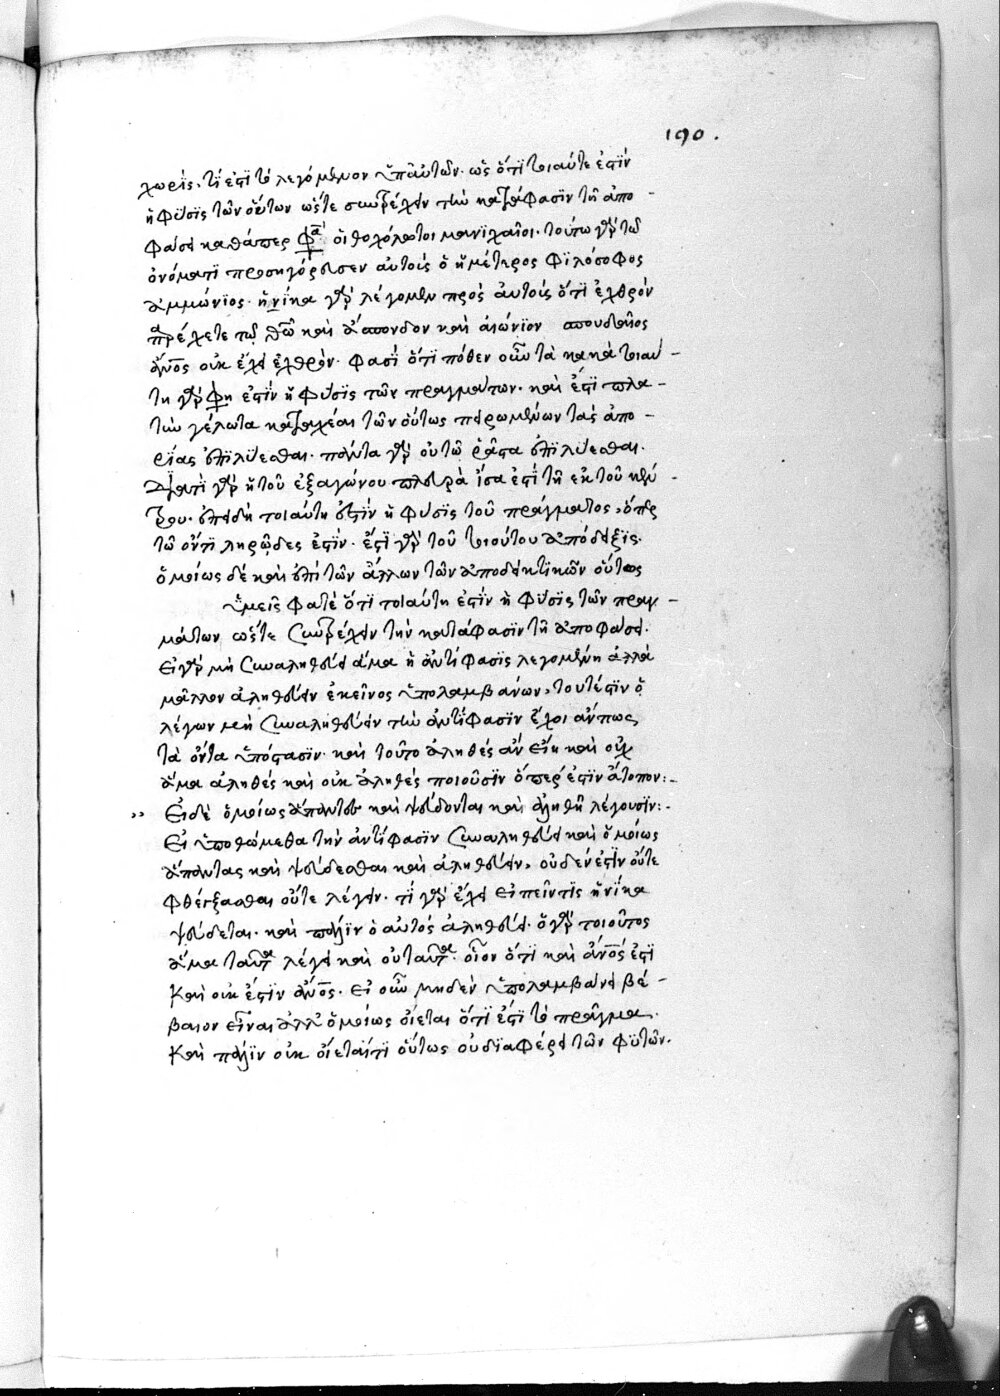 190.
χωρὶς, τί ἐστι τὸ λεγόμενον ὑπ' αὐτῶν. ὡς ὅτι τοιαύτη ἐστὶν
ἡ φύσις τῶν ὄντων ὥστε συντρέχειν τὴν κατάφασιν τῇ ἀπο-
φάσει καθάπερ φα οἱ θολόλατοι μανιχαῖοι. τούτω γὰρ τῷ
ὀνόματι προσηγόρευσεν αὐτοὺς ὁ ἡμέτερος φιλόσοφος
ἀμμώνιος. ἡνίκα γὰρ λέγομεν πρὸς αὐτοὺς ὅτι ἐχθρὸν
παρέχετε τῷ θῶ καὶ ἄσπονδον καὶ αἰώνιον σπουδαῖος
ἄνος οὐκ ἔχει ἐχθρόν. φασὶ ὅτι πόθεν οὖν τὰ κακὰ τοιαύ-
τη γὰρ φη ἐστὶν ἡ φύσις τῶν πραγμάτων. καὶ ἔστι πλα-
τὺν γέλωτα καταχέαι τῶν οὕτως πειρωμένων τὰς ἀπο-
ρίας ἐπιλύεσθαι. πάντα γὰρ οὕτω ῥᾷστα ἐπιλύεσθαι.
Διατί γὰρ ἡ τοῦ ἑξαγώνου πλευρὰ ἴσα ἐστὶ τῇ ἐκ τοῦ κέν-
τρου. ἐπειδὴ τοιαύτη ἐστὶν ἡ φύσις τοῦ πράγματος, ὅπερ
τῷ ὄντι ληρῶδες ἐστίν. ἔστι γὰρ τοῦ τοιούτου ἀπόδειξις.
ὁμοίως δὲ καὶ ἐπὶ τῶν ἄλλων τῶν ἀποδεικτικῶν οὕτως
ὑμεῖς φατὲ ὅτι τοιαύτη ἐστὶν ἡ φύσις τῶν πραγ-
μάτων ὥστε συντρέχειν τὴν κατάφασιν τῇ ἀποφάσει.
Εἰ γὰρ μὴ συναληθεύει ἅμα ἡ ἀντίφασις λεγομένη ἀλλὰ
μᾶλλον ἀληθεύειν ἐκεῖνος ὑπολαμβάνων, τουτέστιν ὁ
λέγων μὴ συναληθεύειν τὴν ἀντίφασιν ἔχοι ἄν πως
τὰ ὄντα ὑπόστασιν. καὶ τοῦτο ἀληθές ἂν εἴη καὶ οὐχ
ἅμα ἀληθές καὶ οὐκ ἀληθές ποιοῦσιν ὅπερ ἐστὶν ἄτοπον:-
,, Εἰ δὲ ὁμοίως ἅπαντες καὶ ψεύδονται καὶ ἀληθῆ λέγουσιν:-
Εἰ ὑποθώμεθα τὴν ἀντίφασιν συναληθεύει καὶ ὁμοίως
ἅπαντας καὶ ψεύδεσθαι καὶ ἀληθεύειν, οὐδέν ἐστιν οὔτε
φθέγξασθαι οὔτε λέγειν. τί γὰρ ἔχει εἰπεῖν τις ἡνίκα
ψεύδεται. καὶ πάλιν ὁ αὐτὸς ἀληθεύει. ὁ γὰρ τοιοῦτος
ἅμα ταῦτα λέγει καὶ οὐ ταῦτα. οἷον ὅτι καὶ ἄνος ἐστὶ
Καὶ οὐκ ἔστιν ἄνος. Εἰ οὖν μηδὲν ὑπολαμβάνει βέ-
βαιον εἶναι ἀλλ' ὁμοίως οἴεται ὅτι ἐστὶ τὸ πρᾶγμα.
Καὶ πάλιν οὐκ οἴεται τί οὕτως οὐ διαφέρει τῶν φυτῶν.